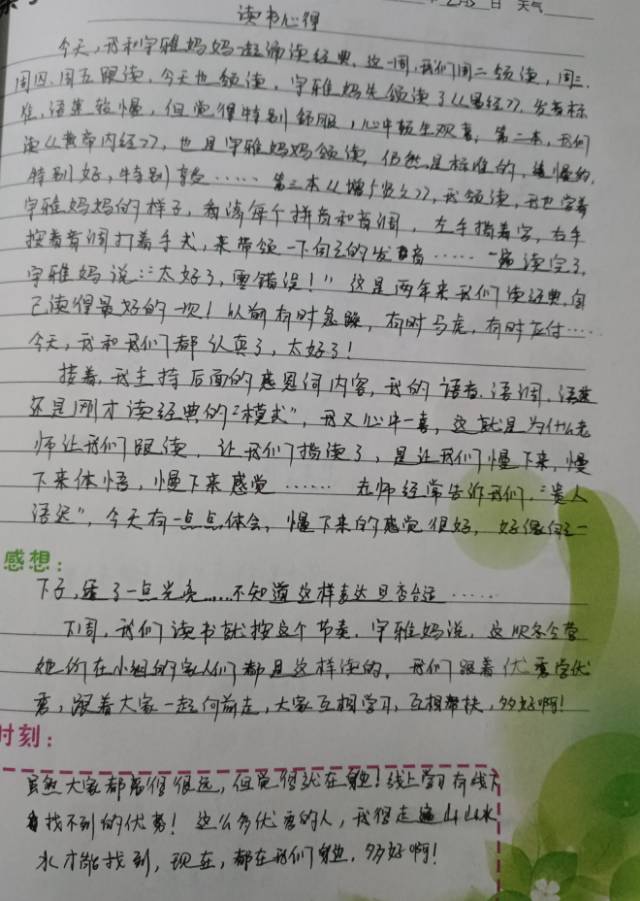 日 天气
读书心得
今天,我和宇雅妈妈一起诵读经典,这一周,我们周二领读,周三、
周四、周五跟读,今天也领读,宇雅妈先领读了《易经》,发音标
准,语速较慢,但觉得特别舒服,心中顿生欢喜,第二本,我们
读《黄帝内经》,也是宇雅妈妈领读,仍然是标准的,缓慢的,
特别好,特别享受……第三本《增广贤文》,我领读,我也学着
宇雅妈妈的样子,看清每个拼音和音调,左手指着字,右手
按着音调打着手式,来带领一下自己的发音……一遍读完了,
宇雅妈说:“太好了,零错误!”这是两年来我们读经典,自
己读得最好的一次!以前有时急躁,有时马虎,有时应付……
今天,我和我们都认真了,太好了!
接着,我主持后面的感恩词内容,我的语音、语调、语速
还是刚才读经典的“模式”,我又心中一喜,这就是为什么老
师让我们跟读,让我们指读了,是让我们慢下来,慢
下来体悟,慢下来感觉……老师经常告诉我们,“贵人
语迟”,今天有一点点体会,慢下来的感觉很好,好像自己一
感想:
下子,有了一点光亮……不知道这样表达是否合适……
下周,我们读书就按这个节奏,宇雅妈说,这次冬令营
她们在小组的家人们都是这样读的,我们跟着优秀学优
秀,跟着大家一起向前走,大家互相学习,互相帮扶,多好啊!
时刻:
虽然大家都离得很远,但觉得就在身边!线上学习有线下
找不到的优势!这么多优秀的人,我得走遍山山水
水才能找到,现在,都在我们身边,多好啊!